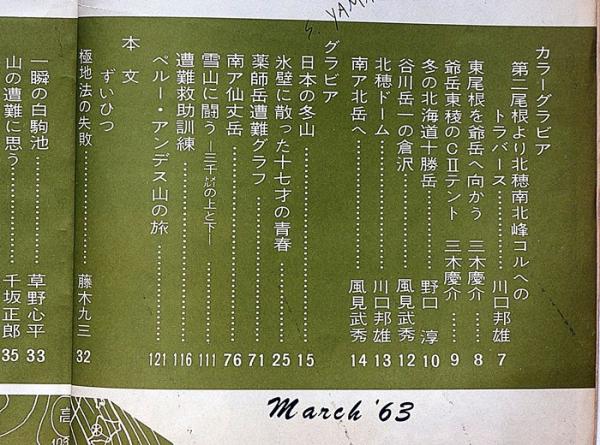 S. YAMA
カラーグラビア
第二尾根より北穂南北峰コルへの
トラバース…………川口邦雄 7
東尾根を爺岳へ向かう 三木慶介…… 8
爺岳東稜のCⅡテント 三木慶介…… 9
冬の北海道十勝岳……………野口 淳 10
谷川岳一の倉沢……………風見武秀 12
北穂ドーム……………川口邦雄 13
南ア北岳へ……………風見武秀 14
グラビア
日本の冬山…………………… 15
氷壁に散った十七才の青春…………… 25
薬師岳遭難グラフ…………………… 71
南ア仙丈岳…………………… 76
雪山に闘う―三千㍍の上と下― 111
遭難救助訓練…………………… 116
ペルー・アンデス山の旅…………… 121
本文
ずいひつ
極地法の失敗…………藤木九三 32
一瞬の白駒池…………草野心平 33
山の遭難に思う…………千坂正郎 35
March '63
高